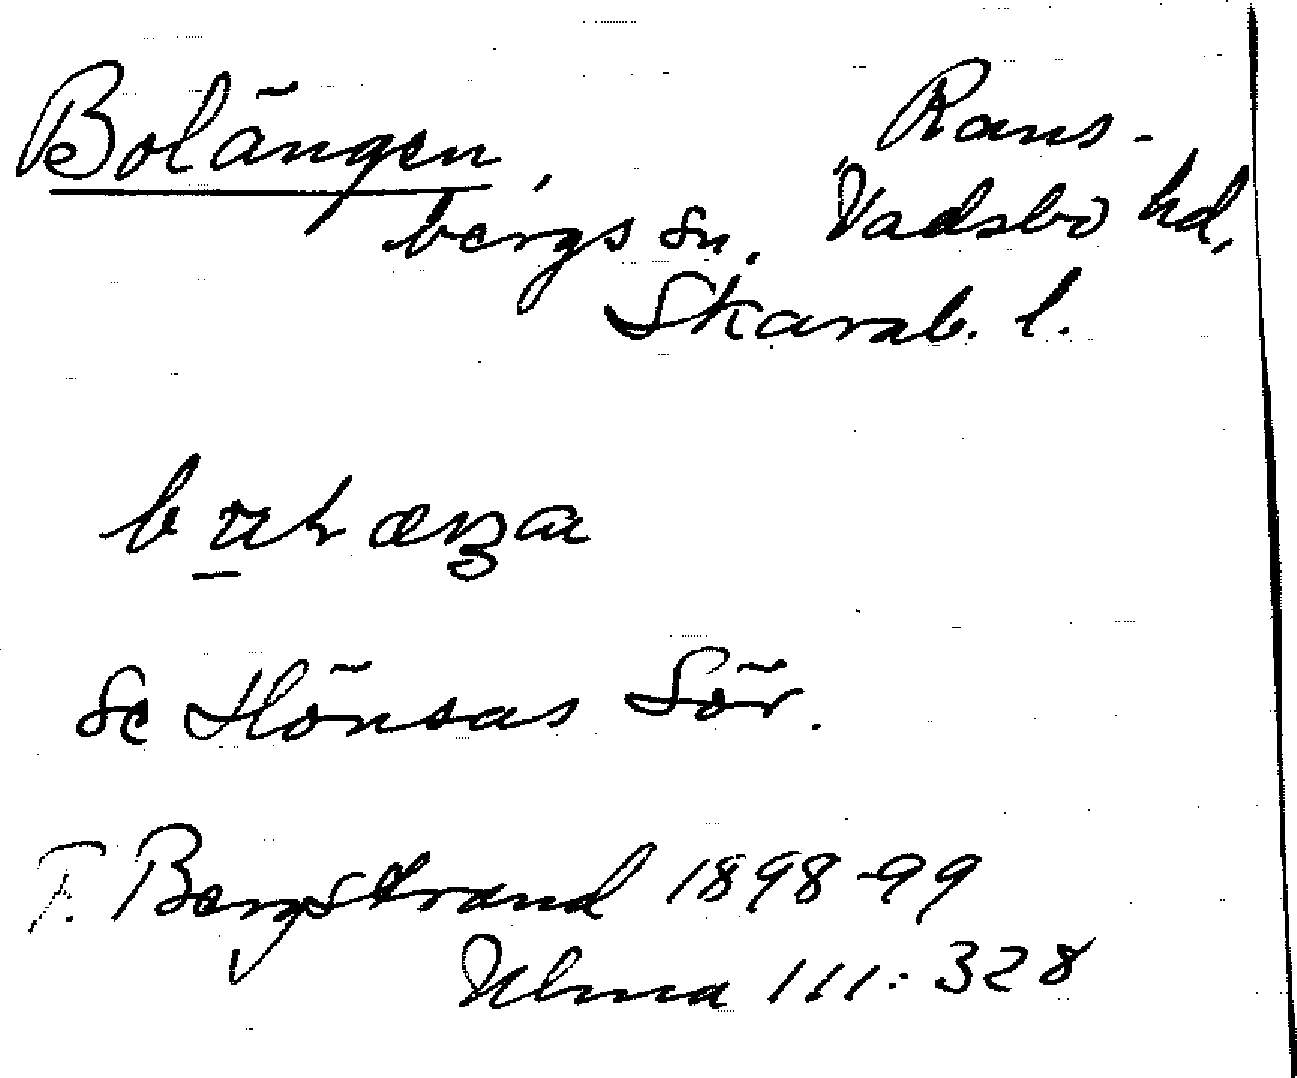 Bolängen, Rans-
bergs sn. Vadsbo hd,
Skarab. l.
Se Hönsas Sör.
F. Bergstrand 1898-99
Ulma 111:328